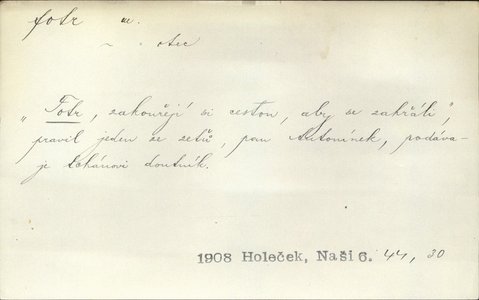 fotr m.
~ . otec
„Fotr, zakouřejí si cestou, aby se zahřáli",
pravil jeden ze zeťů, pan Antonínek, podáva-
je tchánovi doutník.
1908 Holeček, Naši 6. 44, 30